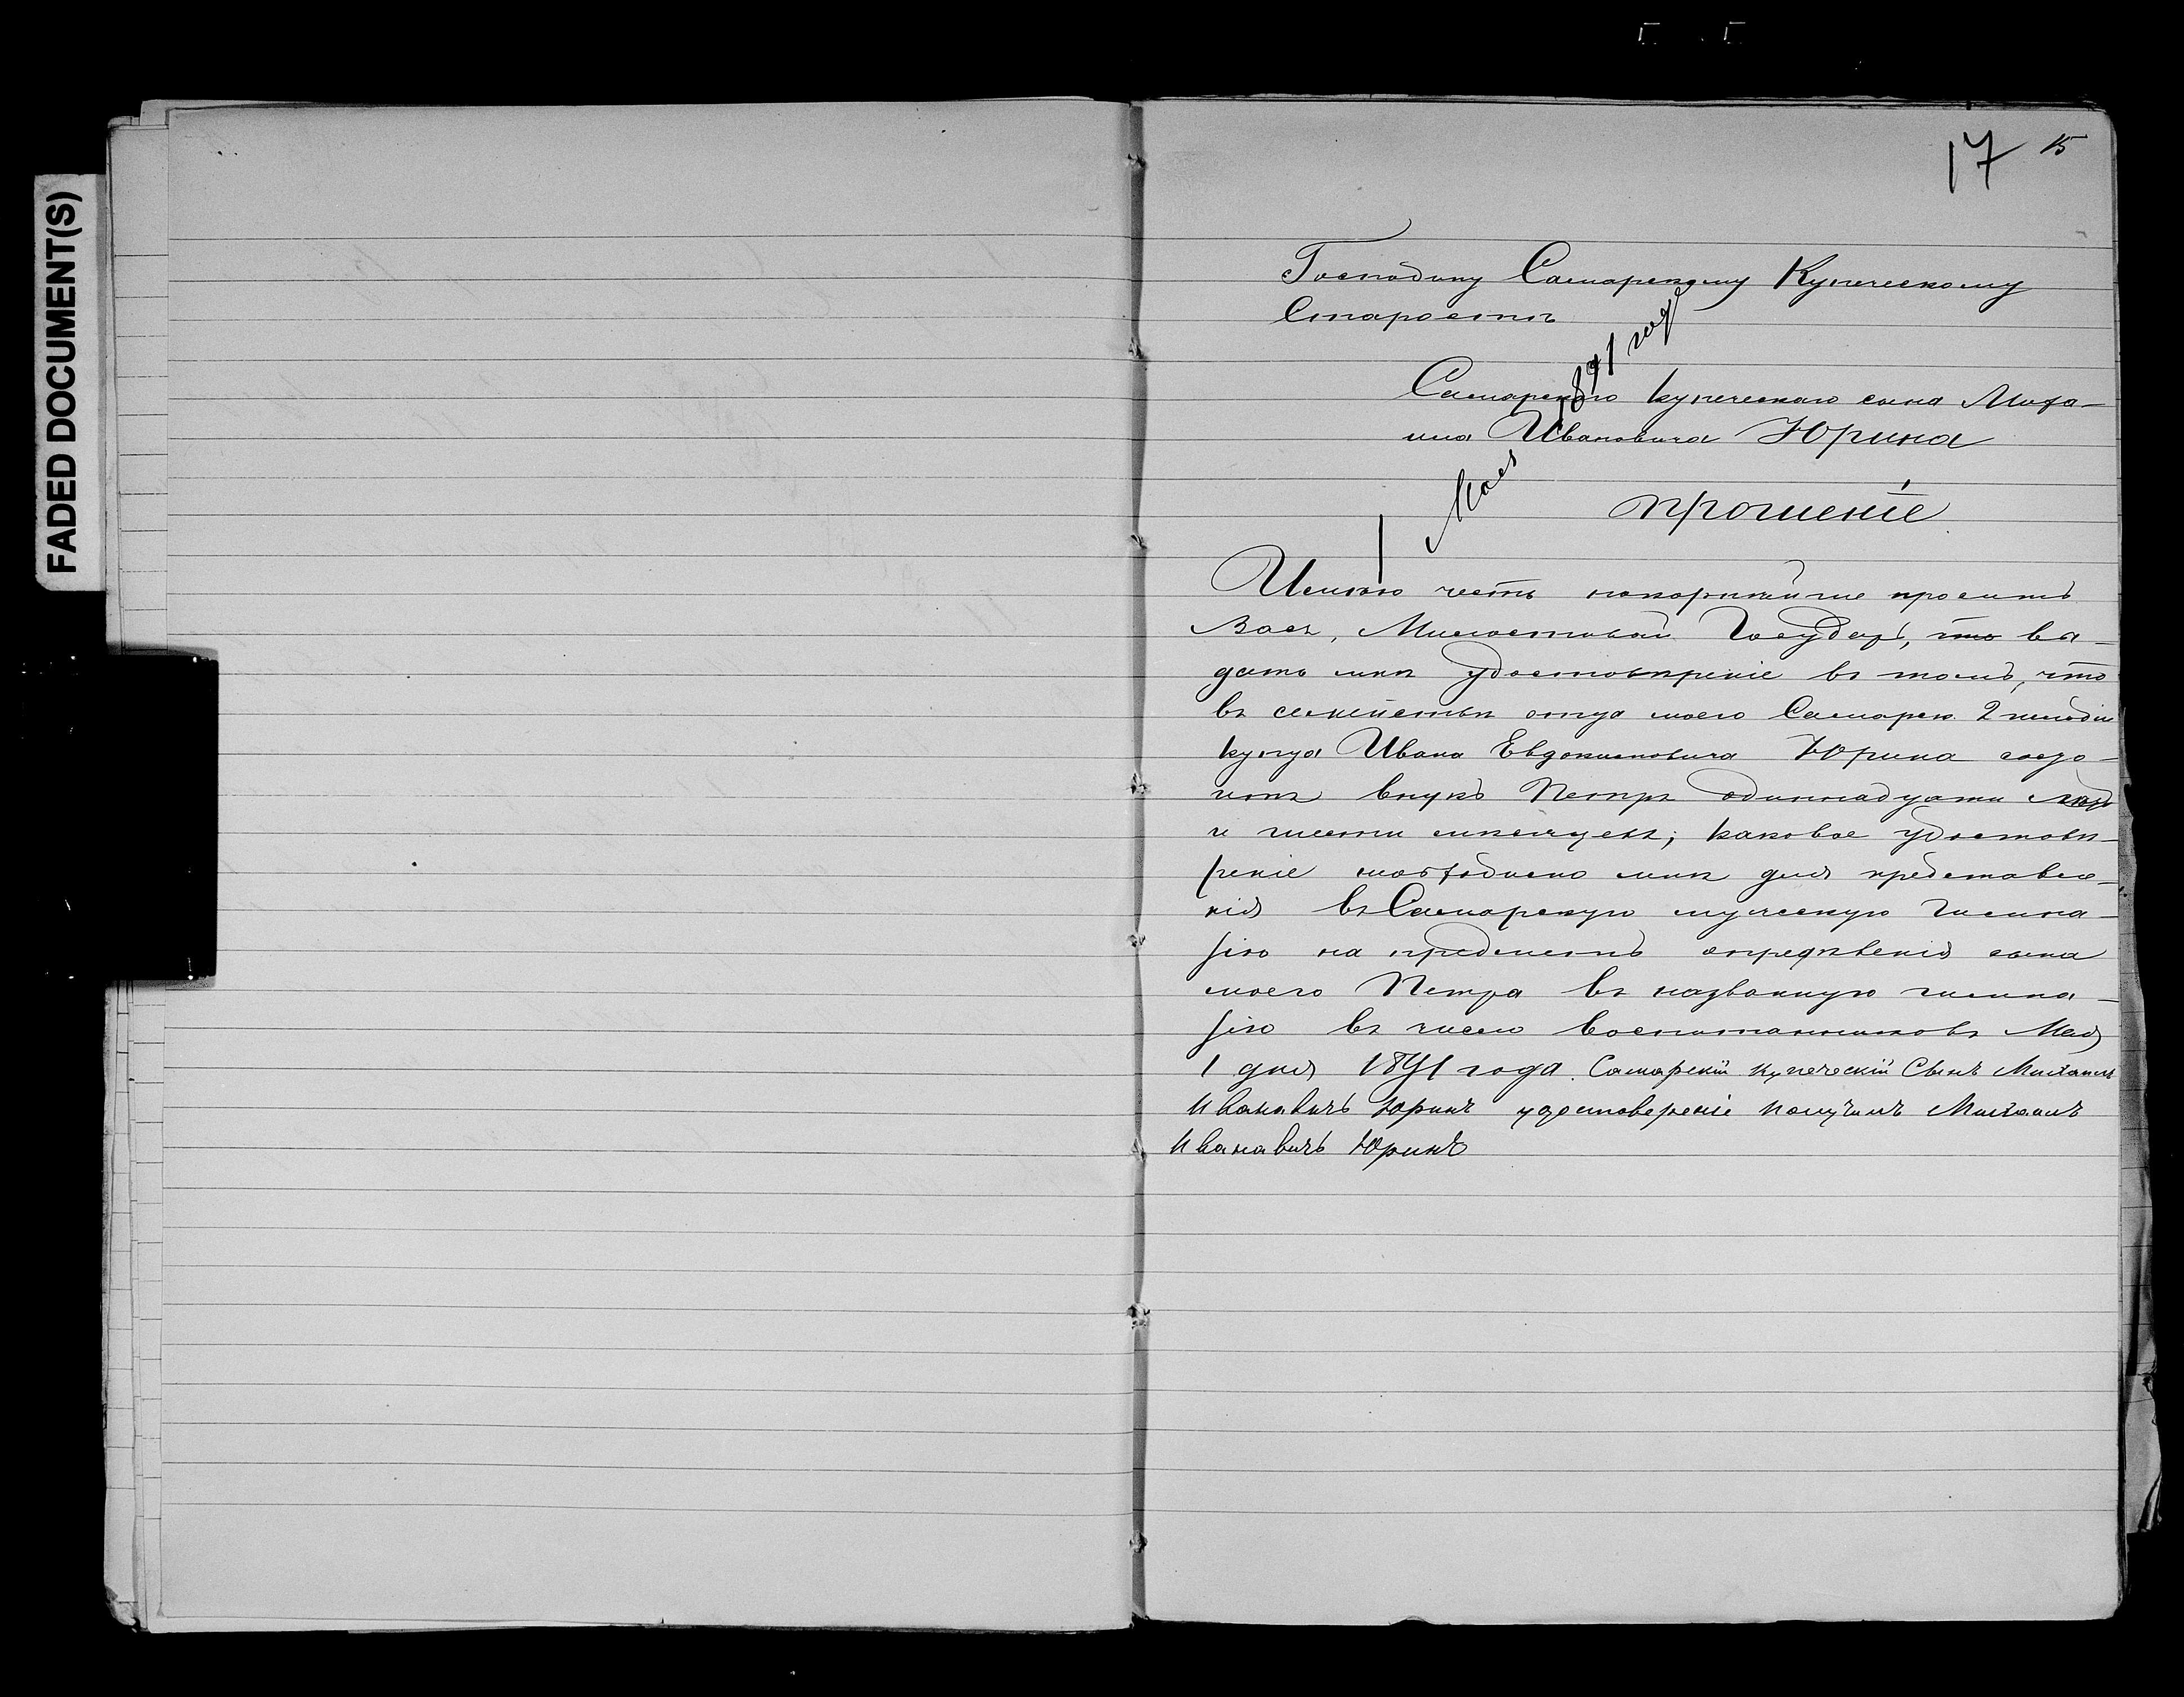 FADED DOCUMENT(S)
17 15
Господину Самарскому Купеческому
Старостѣ
1 Мая 1891 года
Самарскаго купеческаго сына Миха-
ила Ивановича Юрина
прошеніе
Имѣю честь покорнѣйше просить
Васъ, Милостивый Государь, что вы-
дать мнѣ удостовѣреніе въ томъ, что
въ семействѣ отца моего Самарск. 2 гильдіи
купца Ивана Евдокимовича Юрина состо-
итъ внукъ Петръ одиннадцати лѣтъ
и шести мѣсяцевъ; каковое удостовѣ-
реніе необходимо мнѣ для представле-
нія въ Самарскую мужскую Гимна-
зію на предметъ опредѣленія сына
моего Петра въ названную гимна-
зію въ число воспитанниковъ Мая
1 дня 1891 года. Самарскій купеческій Сынъ Михаилъ
Ивановичъ Юринъ удостоверенiе получилъ Михаилъ
Иванавичъ Юринъ